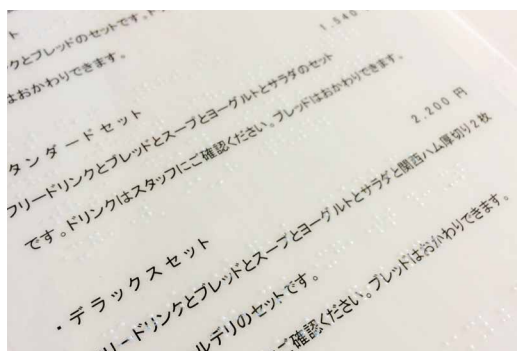 ト
クとブレッドのセットです。ド
はおかわりできます。
1,540
タンダードセット
フリードリンクとブレッドとスープとヨーグルトとサラダのセット
です。ドリンクはスタッフにご確認ください。ブレッドはおかわりできます。
2,200 円
・デラックスセット
リードリンクとブレッドとスープとヨーグルトとサラダと関西ハム厚切り2枚
ルデリのセットです。
ご確認ください。ブレッドはおかわりできます。